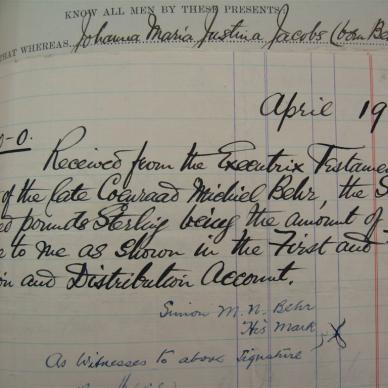 KNOW ALL MEN BY THESE PRESENTS
THAT WHEREAS Johanna Maria Justina Jacobs (born Be
April 19
0-0. Received from the Executrix Testame
of the late Coenraad Michiel Behr, the S
pounds Sterling being the amount of
e to me as shown in the First and
ion and Distribution Account.
Simon M. N. Behr
His Mark X
As Witnesses to above signature